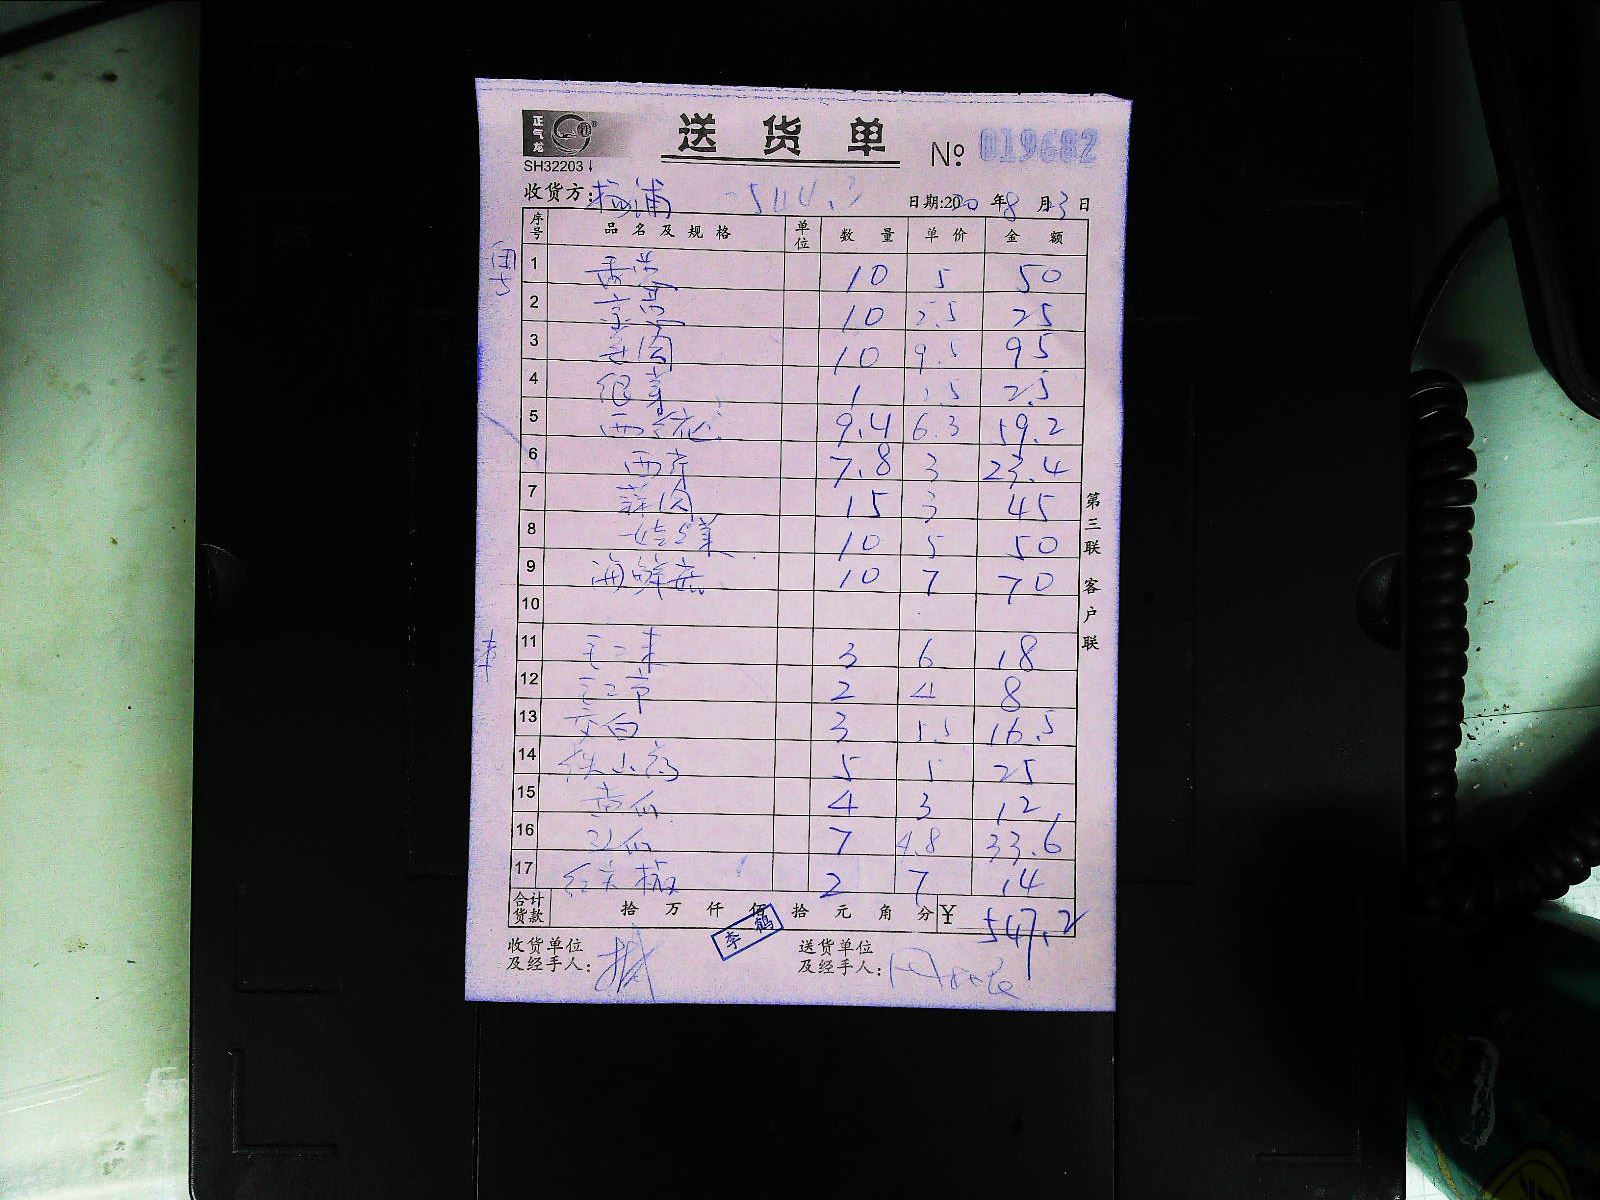 正气龙
SH32203
送货单 № 019682
收货方: 杨浦 544.3 日期:20 年8月3日
序号 品名及规格 单位 数量 单价 金额
1 10 5 50
2 10 2.5 25
3 10 9.5 95
4 银芽 1 2.5 2.5
5 西兰花 9.4 6.3 59.2
6 西芹 7.8 3 23.4
7 蒜肉 15 3 45
8 娃娃菜 10 5 50
9 海鲜菇 10 7 70
10
11 3 6 18
12 2 4 8
13 茭白 3 5.5 16.5
14 铁山药 5 5 25
15 黄瓜 4 3 12
16 7 4.8 33.6
17 红尖椒 2 7 14
合计货款 拾 万 仟 佰 拾 元 角 分 ¥ 547.2
李鹤
收货单位及经手人:
送货单位及经手人:
第三联 客户联